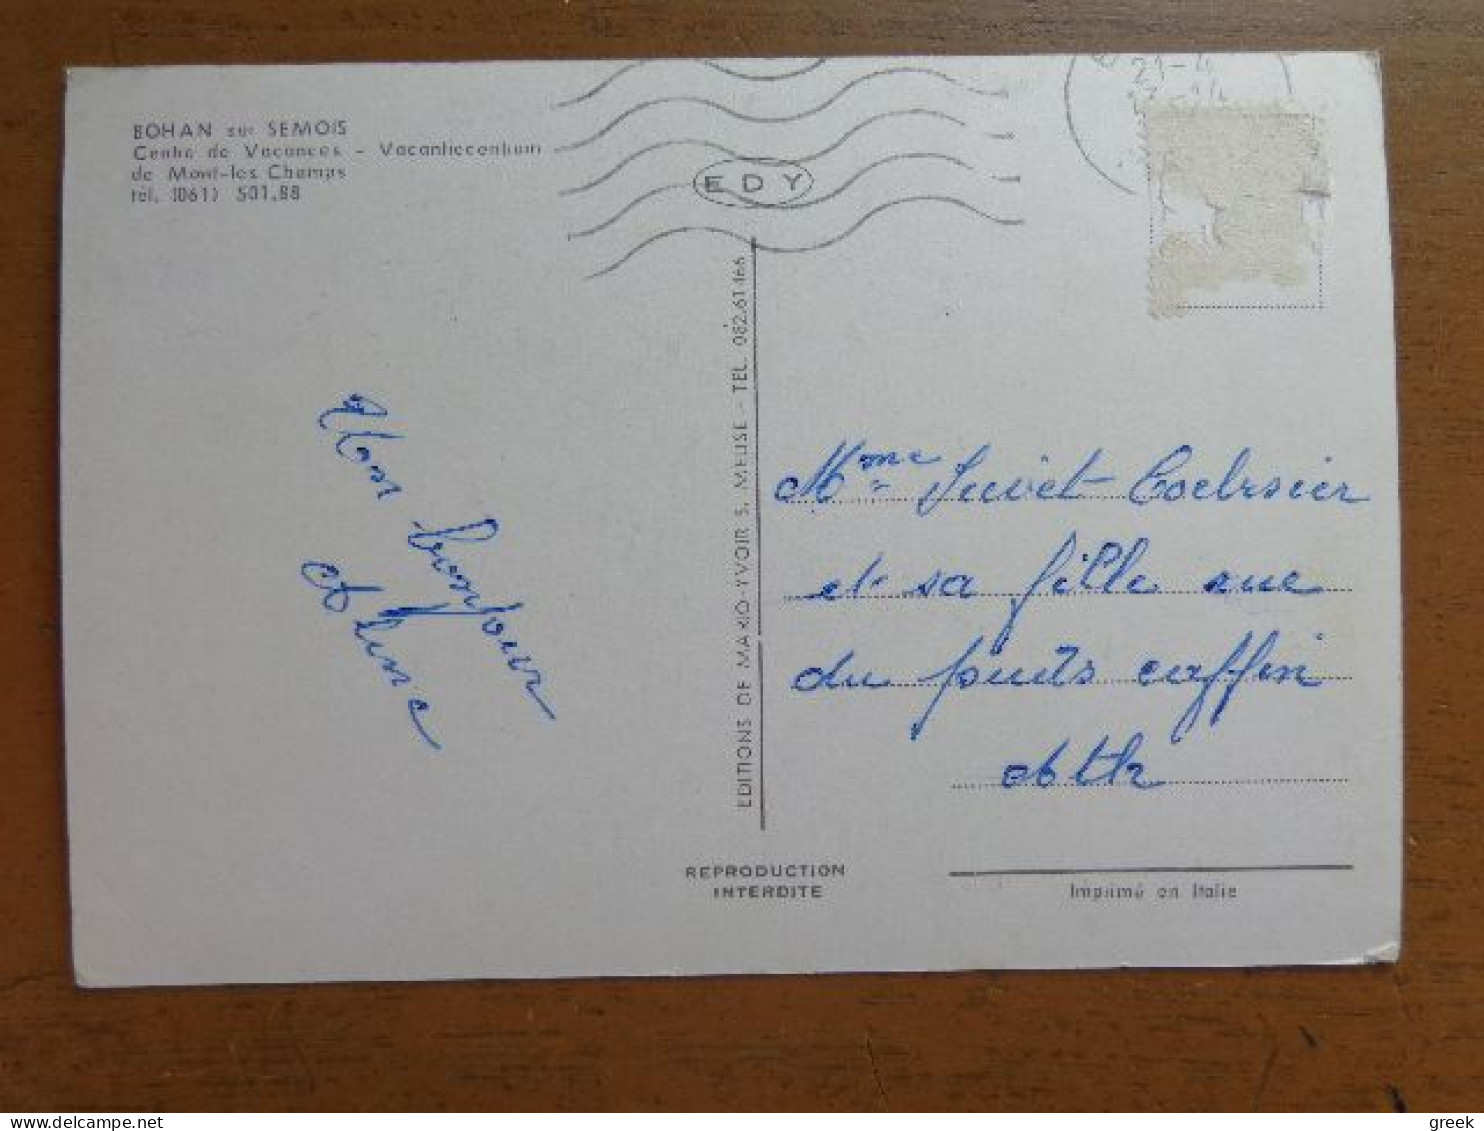 BOHAN sur SEMOIS
Centre de Vacances - Vacantiecentrum
de Mont-les Champs
tél. (061) 501.88
EDY
21-4
EDITIONS DE MARIO-YVOIR S. MEUSE - TEL. 082.61466
Un bonjour
Aline
Mme Juvet
et sa fille rue
du puits
Ath
REPRODUCTION
INTERDITE
Imprimé en Italie
greek